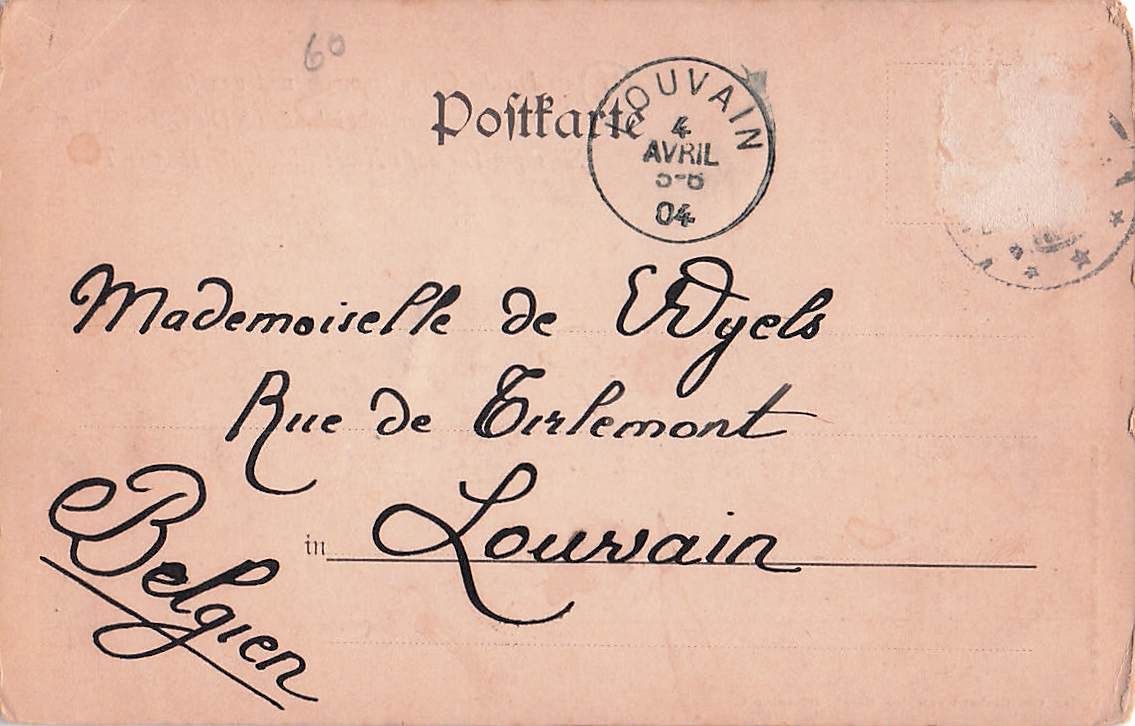 60
Postkarte
LOUVAIN
4
AVRIL
04
Mademoiselle de Wyels
Rue de Tirlemont
in Louvain
Belgien